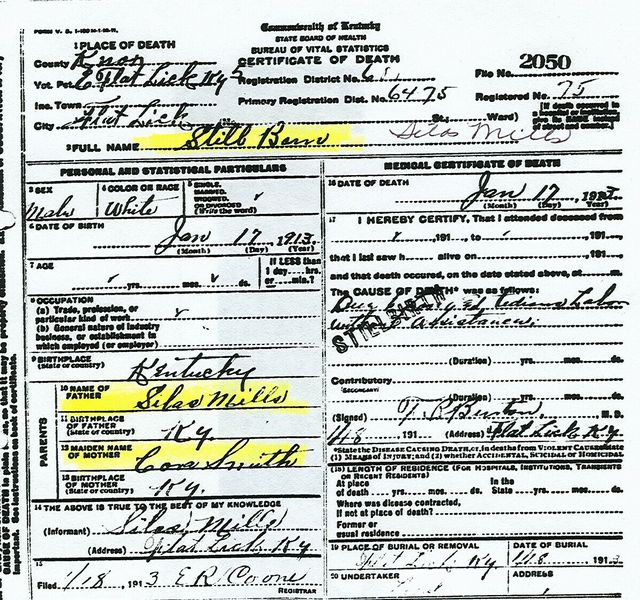 FORM V. S. 1-
Commonwealth of Kentucky
STATE BOARD OF HEALTH
BUREAU OF VITAL STATISTICS
CERTIFICATE OF DEATH
1 PLACE OF DEATH
County Knox
Vot. Pct. E Flat Lick Ky
Inc. Town
City Flat Lick
Registration District No.
Primary Registration Dist. No. 6475
St.; Ward)
File No. 2050
Registered No. 75
[If death occurred in
give its NAME instead
of street and number.]
Silas Mills
2 FULL NAME Still Born
PERSONAL AND STATISTICAL PARTICULARS
3 SEX
Male
4 COLOR OR RACE
White
5 SINGLE,
MARRIED,
WIDOWED,
OR DIVORCED
(Write the word)
6 DATE OF BIRTH
Jan 17 1913
(Month) (Day) (Year)
7 AGE
yrs. mos. ds.
If LESS than
1 day....hrs.
or....min.?
8 OCCUPATION
(a) Trade, profession, or
particular kind of work
(b) General nature of industry
business, or establishment in
which employed (or employer)
9 BIRTHPLACE
(State or country)
Kentucky
PARENTS
10 NAME OF
FATHER
Silas Mills
11 BIRTHPLACE
OF FATHER
(State or country)
Ky.
12 MAIDEN NAME
OF MOTHER
Cora Smith
13 BIRTHPLACE
OF MOTHER
(State or country)
Ky.
14 THE ABOVE IS TRUE TO THE BEST OF MY KNOWLEDGE
(Informant) Silas Mills
(Address) Flat Lick Ky
15
Filed 1/18, 1913 E R Coone
REGISTRAR
MEDICAL CERTIFICATE OF DEATH
16 DATE OF DEATH
Jan 17 1913
(Month) (Day) (Year)
17 I HEREBY CERTIFY, That I attended deceased from
, 191 , to , 191 ,
that I last saw h alive on , 191 ,
and that death occured, on the date stated above, at m.
The CAUSE OF DEATH* was as follows:
Labor
without Assistance
STILLBIRTH
(Duration) yrs. mos. ds.
Contributory
SECONDARY
(Duration) yrs. mos. ds.
(Signed) T R Burton M. D.
1/18, 191 (Address) Flat Lick Ky.
*State the DISEASE CAUSING DEATH, or, in deaths from VIOLENT CAUSES state
(1) MEANS OF INJURY; and (2) whether ACCIDENTAL, SUICIDAL or HOMICIDAL
18 LENGTH OF RESIDENCE (FOR HOSPITALS, INSTITUTIONS, TRANSIENTS
OR RECENT RESIDENTS)
At place
of death yrs. mos. ds.
In the
State yrs. mos. ds.
Where was disease contracted,
If not at place of death?
Former or
usual residence
19 PLACE OF BURIAL OR REMOVAL
Flat Lick Ky
DATE OF BURIAL
1/18, 1913
20 UNDERTAKER
ADDRESS
CAUSE OF DEATH in plain
important. See instructions on back of certificate.